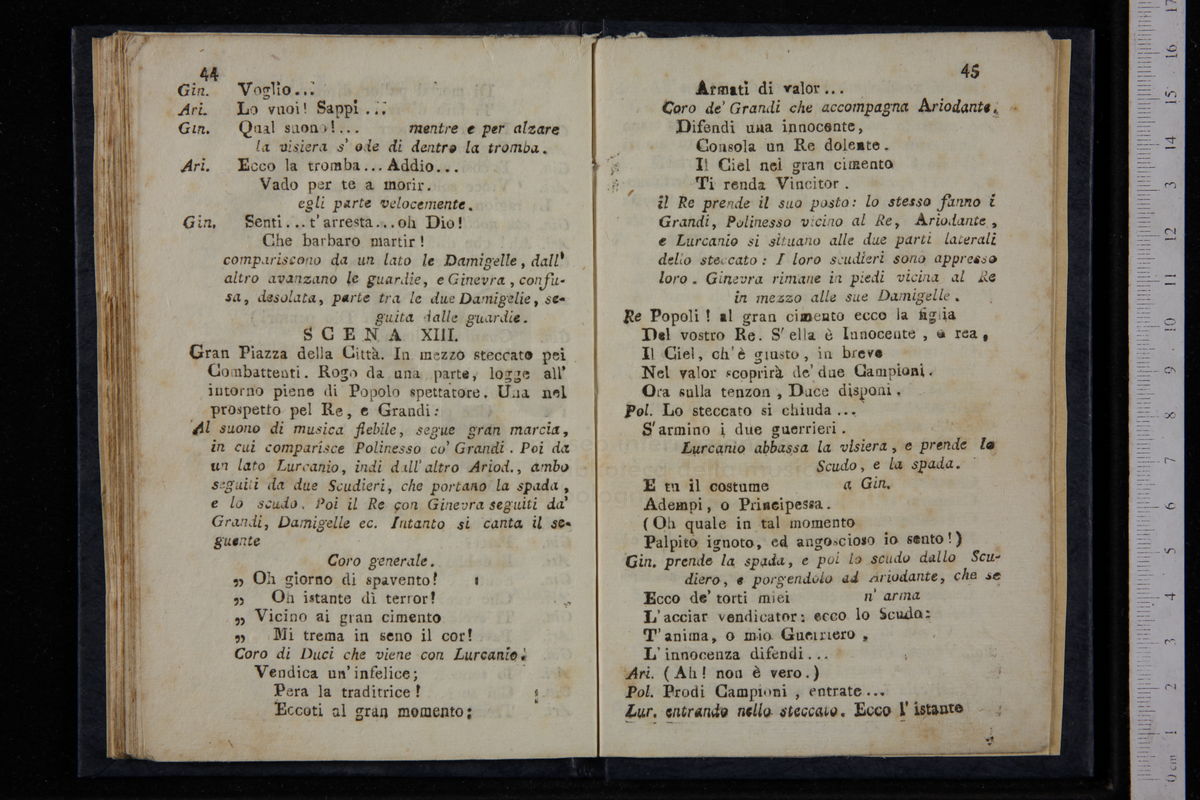 44
Gin. Voglio...
Ari. Lo vuoi! Sappi ...
Gin. Qual suono!... mentre e per alzare
la visiera s' ode di dentro la tromba.
Ari. Ecco la tromba... Addio...
Vado per te a morir.
egli parte velocemente.
Gin. Senti...t'arresta...oh Dio!
Che barbaro martir!
compariscono da un lato le Damigelle, dall'
altro avanzano le guardie, e Ginevra, confu-
sa, desolata, parte tra le due Damigelle, se-
guita dalle guardie.
SCENA XIII.
Gran Piazza della Città. In mezzo steccato pei
Combattenti. Rogo da una parte, logge all'
intorno piene di Popolo spettatore. Una nel
prospetto pel Re, e Grandi:
Al suono di musica flebile, segue gran marcia,
in cui comparisce Polinesso co' Grandi. Poi da
un lato Lurcanio, indi dall'altro Ariod., ambo
seguiti da due Scudieri, che portano la spada,
e lo scudo. Poi il Re con Ginevra seguiti da'
Grandi, Damigelle ec. Intanto si canta il se-
guente
Coro generale.
„ Oh giorno di spavento!
„ Oh istante di terror!
„ Vicino ai gran cimento
„ Mi trema in seno il cor!
Coro di Duci che viene con Lurcanio.
Vendica un'infelice;
Pera la traditrice!
Eccoti al gran momento;
45
Armati di valor...
Coro de' Grandi che accompagna Ariodante.
Difendi una innocente,
Consola un Re dolente.
Il Ciel nel gran cimento
Ti renda Vincitor.
il Re prende il suo posto: lo stesso fanno i
Grandi, Polinesso vicino al Re, Ariodante,
e Lurcanio si situano alle due parti laterali
dello steccato: I loro scudieri sono appresso
loro. Ginevra rimane in piedi vicina al Re
in mezzo alle sue Damigelle.
Re Popoli! al gran cimento ecco la figlia
Del vostro Re. S' ella è Innocente, o rea,
Il Ciel, ch'è giusto, in breve
Nel valor scoprirà de' due Campioni.
Ora sulla tenzon, Duce disponi.
Pol. Lo steccato si chiuda...
S'armino i due guerrieri.
Lurcanio abbassa la visiera, e prende lo
Scudo, e la spada.
E tu il costume a Gin.
Adempi, o Principessa.
(Oh quale in tal momento
Palpito ignoto, ed angoscioso io sento!)
Gin. prende la spada, e poi lo scudo dallo Scu-
diero, e porgendolo ad Ariodante, che se
Ecco de' torti miei n' arma
L'acciar vendicator: ecco lo Scudo:
T'anima, o mio Guerriero,
L'innocenza difendi...
Ari. (Ah! non è vero.)
Pol. Prodi Campioni, entrate...
Lur. entrando nello steccato. Ecco l' istante